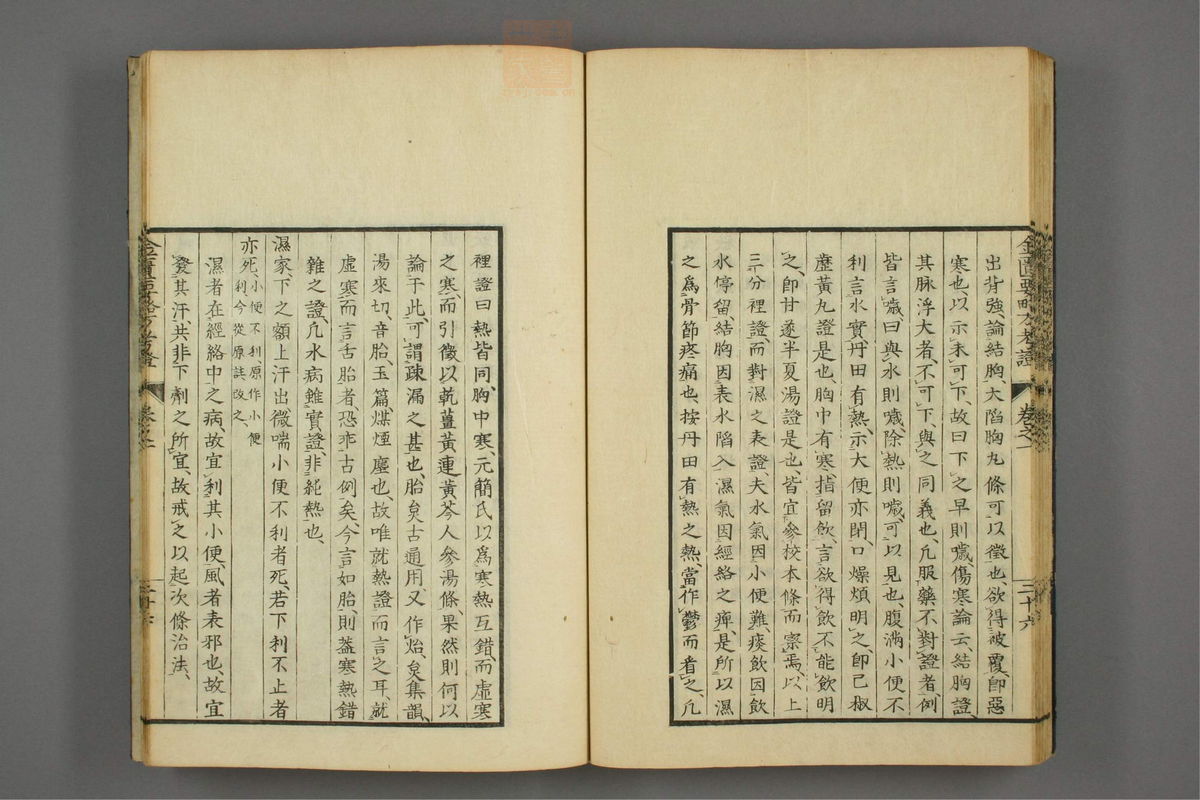 金匱要略方考證 卷之一 三十六
出背強、論結胸、大陷胸丸條可以徵也、欲得被覆、即惡
寒也、以示未可下、故曰下之早則噦、傷寒論云、結胸證、
其脉浮大者、不可下、與之同義也、凡服藥不對證者、例
皆言噦、曰與水則噦、除熱則噦、可以見也、腹滿小便不
利、言水實、丹田有熱、示大便亦閉、口燥煩、明之、即己椒
藶黃丸證是也、胸中有寒、指留飲、言欲得飲不能飲、明
之、即甘遂半夏湯證是也、皆宜參校本條而察焉、以上
三分裡證、而對濕之表證、夫水氣因小便難、痰飲因飲
水停留、結胸因表水陷入、濕氣因經絡之痺、是所以濕
之爲骨節疼痛也、按丹田有熱之熱、當作鬱而看之、凡
裡證曰熱皆同、胸中寒、元簡氏以爲寒熱互錯、而虛寒
之寒、而引徵以乾薑黃連黃芩人參湯條、果然則何以
論于此、可謂疎漏之甚也、胎炱古通用、又作炲、炱集韻、
湯來切、音胎、玉篇、煤煙塵也、故唯就熱證而言之耳、就
虛寒而言舌胎者恐非古例矣、今言如胎、則蓋寒熱錯
雜之證、凡水病雖實證、非純熱也、
濕家、下之、額上汗出、微喘、小便不利者死、若下利不止者
亦死、小便不利、原作小便利、今從原註改之、
濕者在經絡中之病、故宜利其小便、風者表邪也、故宜
發其汗、共非下劑之所宜、故戒之以起次條治法、
金匱要略方考證 卷之一